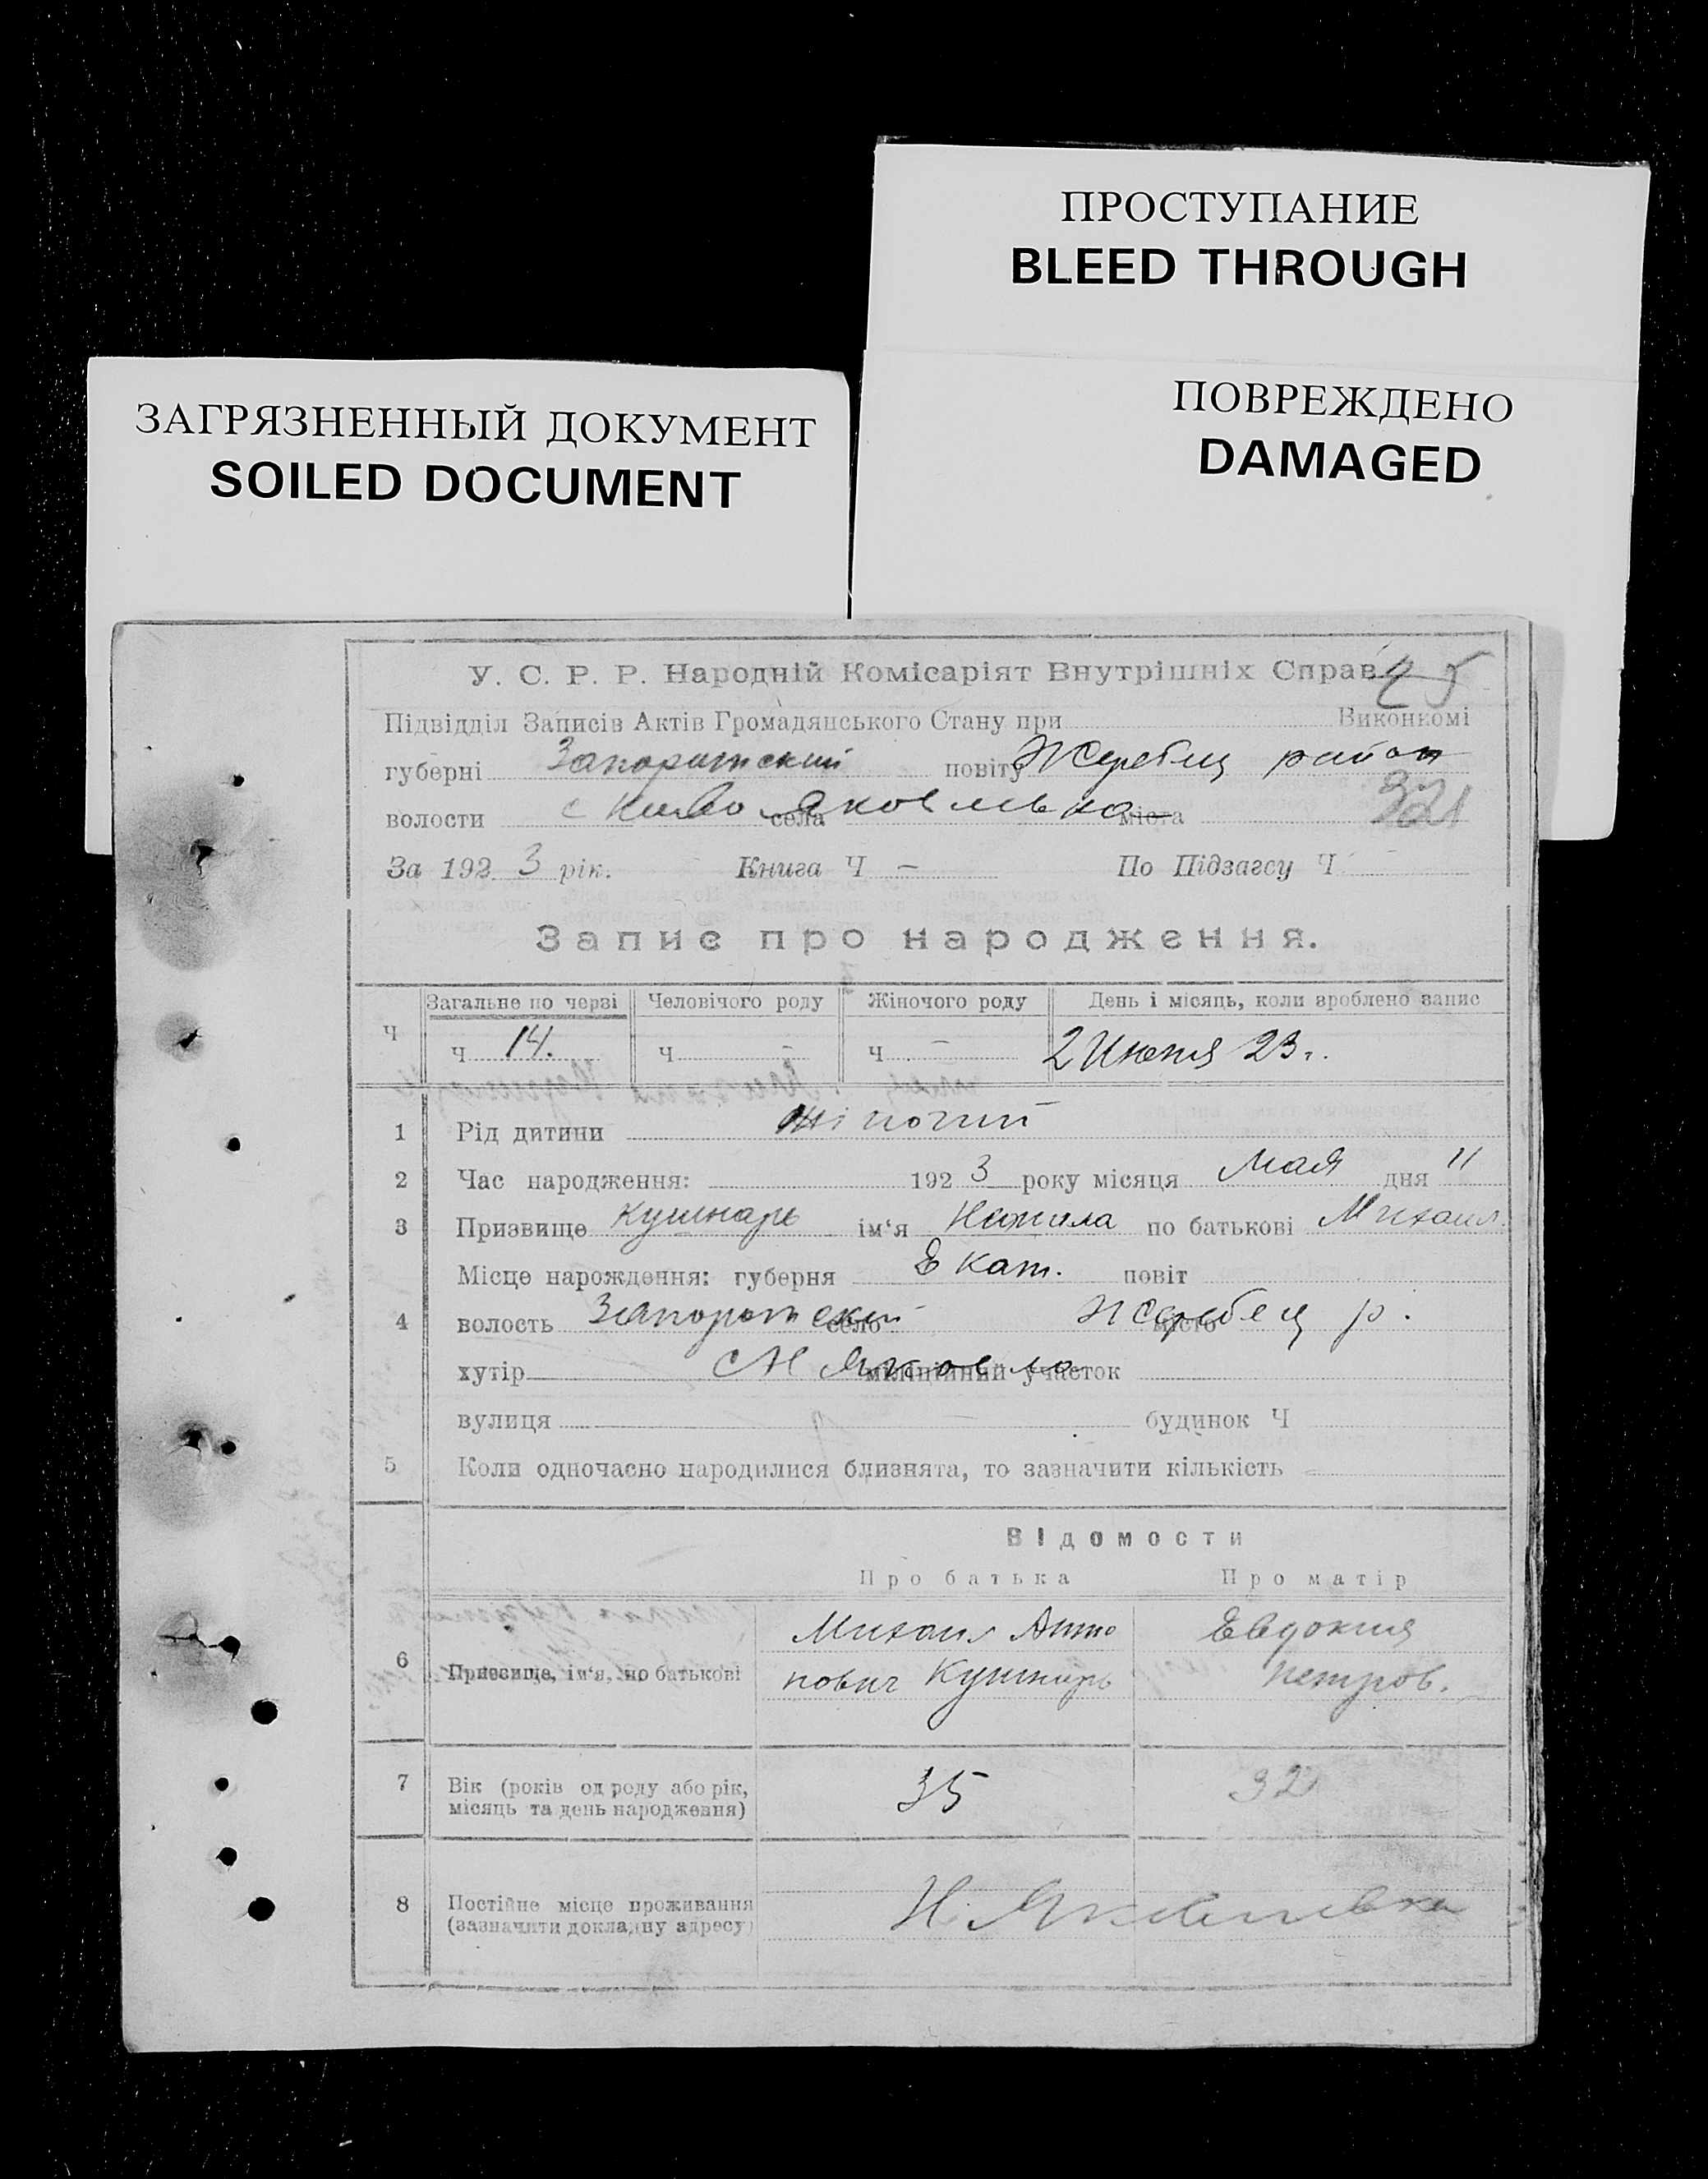 ПРОСТУПАНИЕ
BLEED THROUGH
ПОВРЕЖДЕНО
DAMAGED
ЗАГРЯЗНЕННЫЙ ДОКУМЕНТ
SOILED DOCUMENT
У. С. Р. Р. Народній Комісаріят Внутрішніх Справ
45
Підвідділ Записів Актів Громадянського Стану при Виконкомі
губерні Запорожский повіту Жеребец район
волости с села Яковлевка міста 321
За 1923 рік. Книга Ч – По Підзагсу Ч –
Запис про народження.
Загальне по черзі Человічого роду Жіночого роду День і місяць, коли зроблено запис
Ч Ч 14. Ч – Ч – 2 Июня 23 г.
1 Рід дитини жіночий
2 Час народження: 1923 року місяця Мая дня 11
3 Призвище Кушнарь ім'я по батькові Михаил.
Місце нарождення: губерня Екат. повіт
4 волость Запорожский село Жеребец р. місто
хутір Н Яковл міліційний участок
вулиця будинок Ч
5 Коли одночасно народилися близнята, то зазначити кількість
Відомости
Про батька Про матір
6 Призвище, ім'я, по батькові
Михаил Анто Евдокия
нович Кушнарь Петров.
7 Вік (років од роду або рік, 35 32
місяць та день народження)
8 Постійне місце проживання Н. Яковлевка
(зазначити докладну адресу)